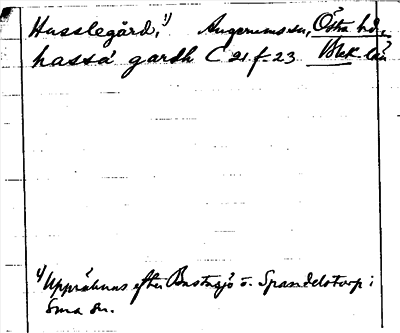 Husslegård,¹) Augerums sn, Östra hd,
hassa gardh C 21 f. 23 Blek län
¹) Uppräknas efter Bastasjö o. Spandelstorp i
sma sn.